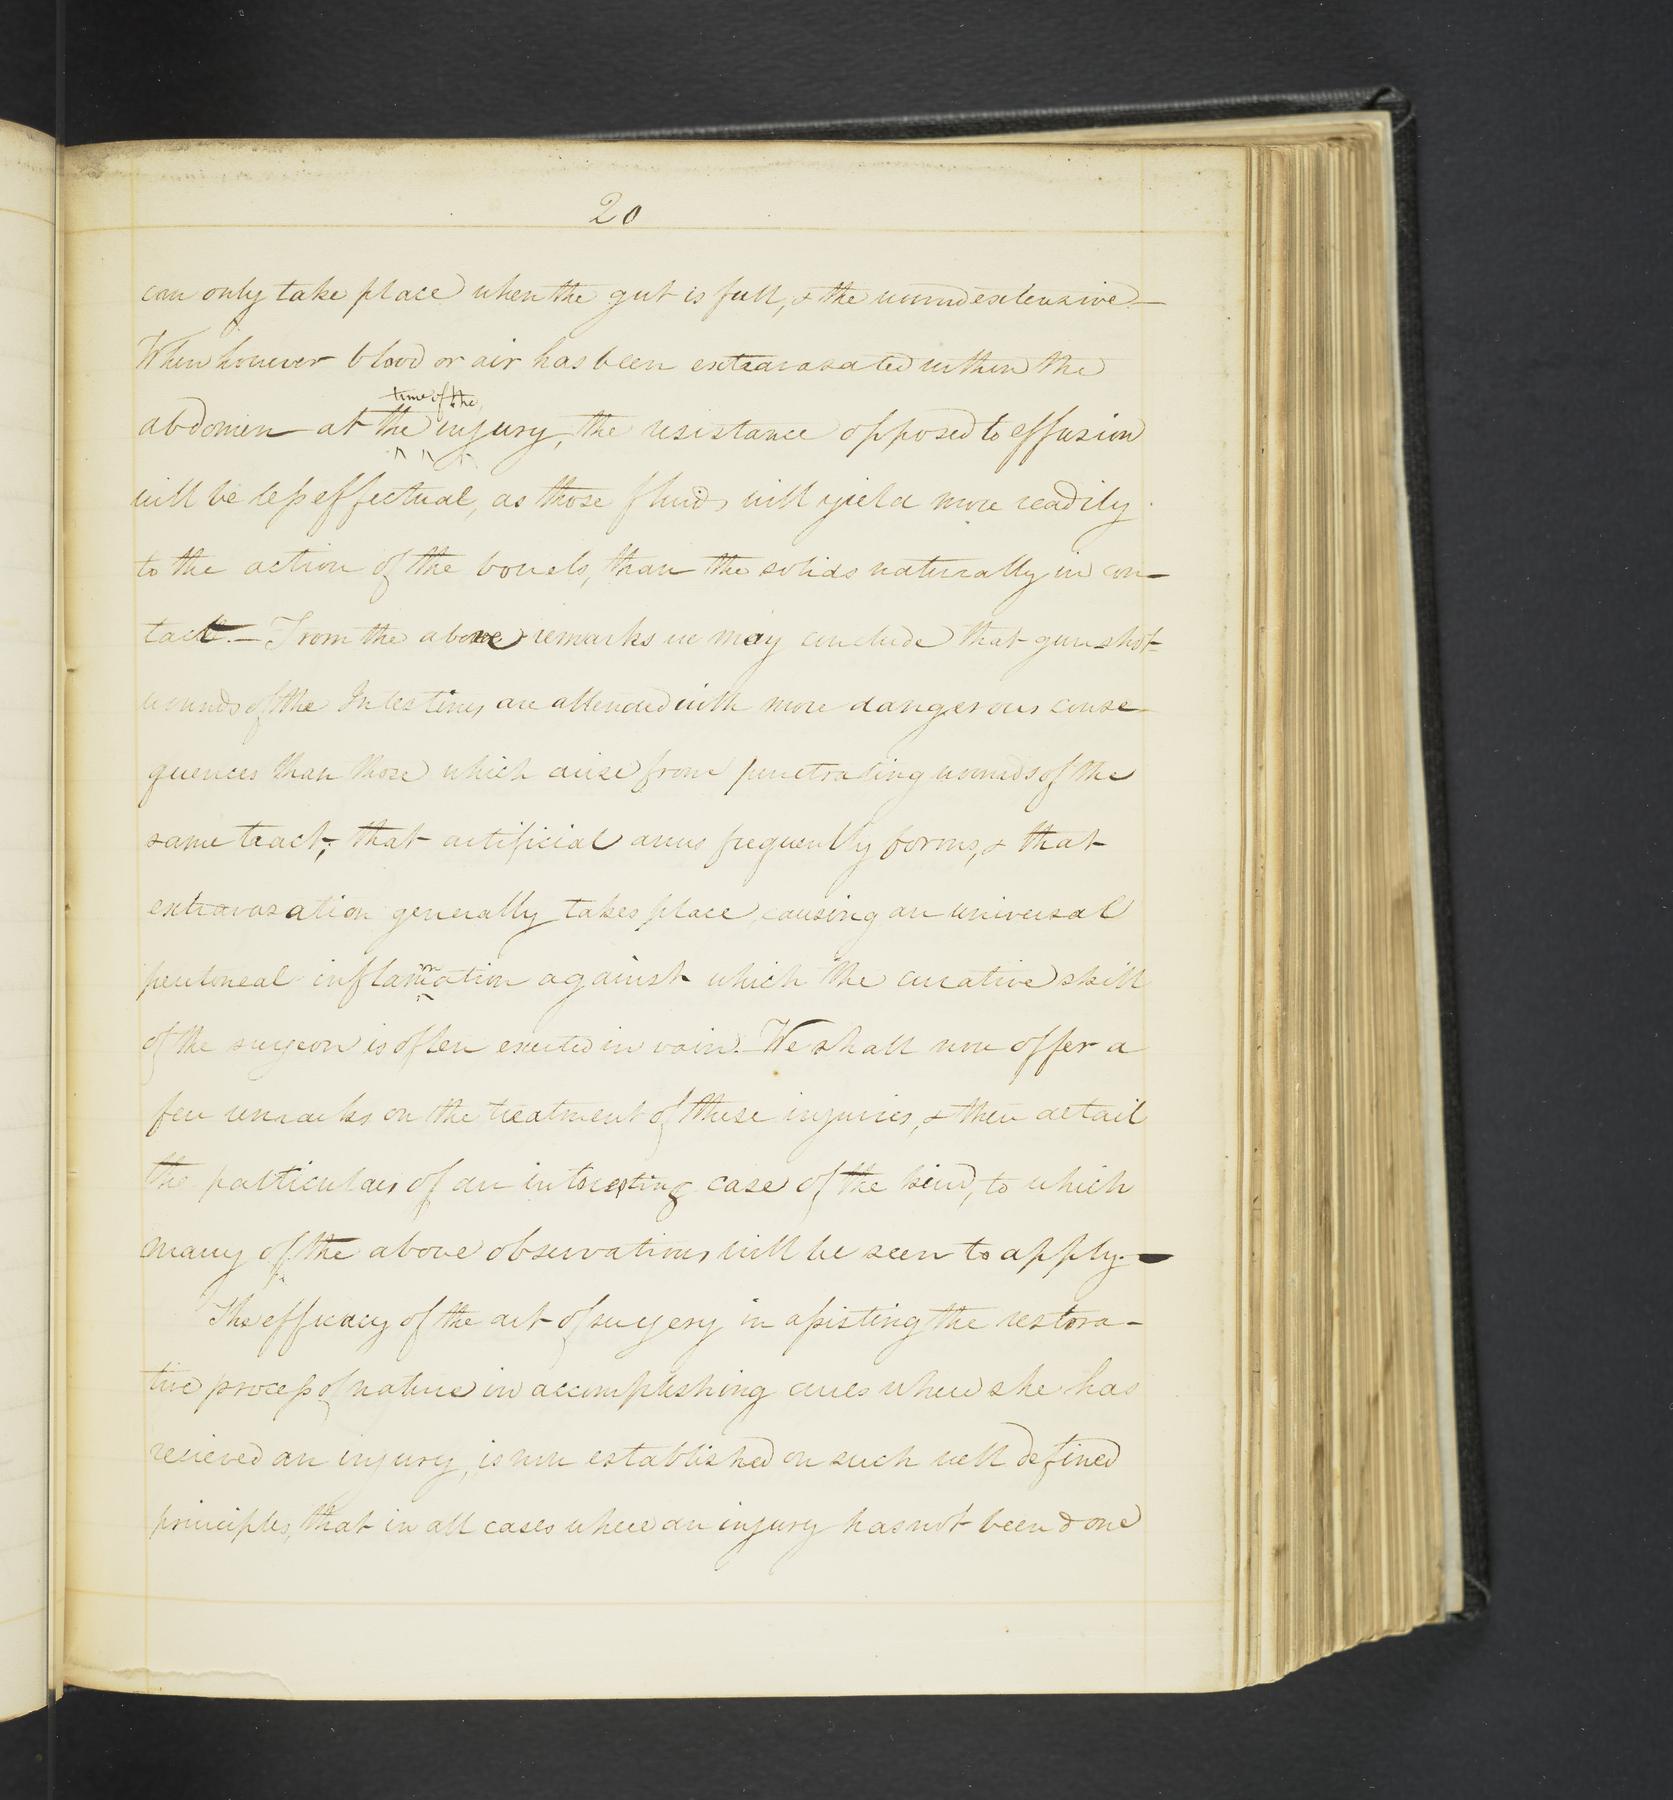 20
can only take place when the gut is full, & the wound extensive —
When however blood or air has been extravasated within the
time of the
abdomen at the injury, the resistance opposed to effusion
will be less effectual, as those fluids will yield more readily
to the action of the bowels, than the solids naturally in con-
tact. — From the above remarks we may conclude that gun shot
wounds of the Intestines are attended with more dangerous conse-
quences than those which arise from penetrating wounds of the
same tract; that artificial anus frequently forms, & that
extravasation generally takes place, causing an universal
peritoneal inflammation against which the curative skill
of the surgeon is often exerted in vain. — We shall now offer a
few remarks on the treatment of these injuries, & then detail
the particulars of an interesting case of the kind, to which
many of the above observations will be seen to apply. —
The efficacy of the art of surgery in assisting the restora-
tive process of nature in accomplishing cures where she has
recieved an injury, is now established on such well defined
principles, that in all cases where an injury has not been done